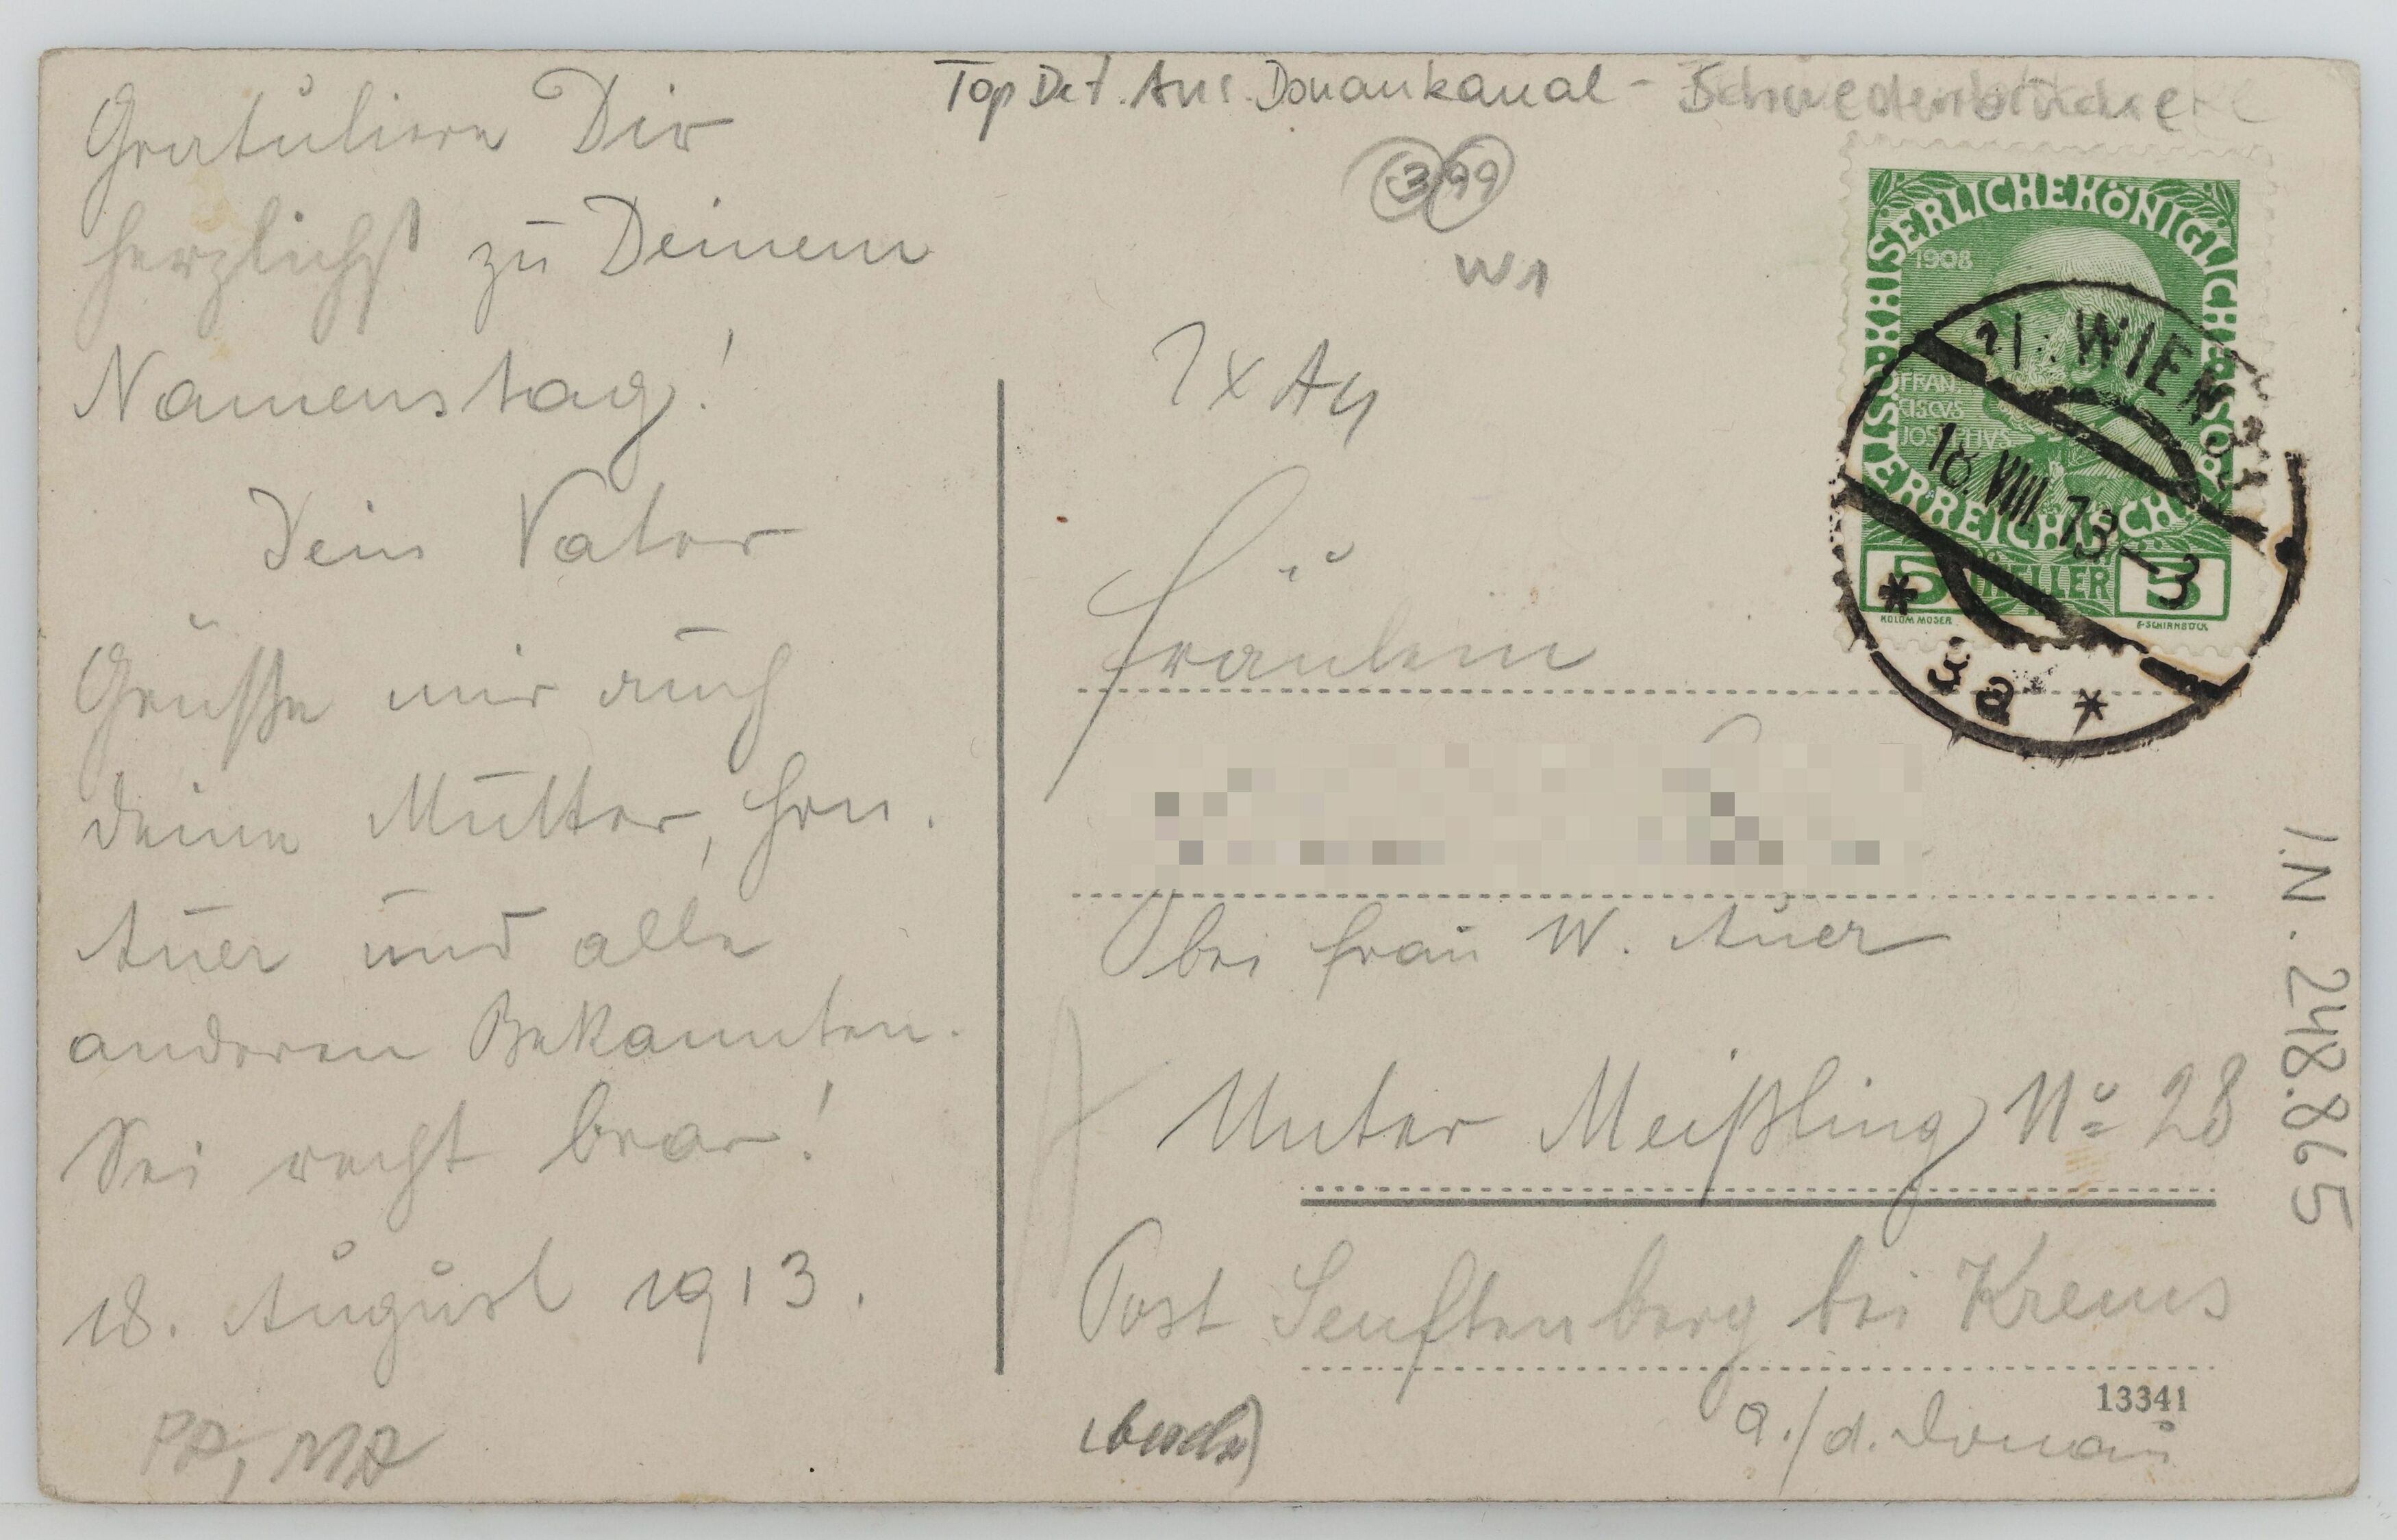 Gratuliere Dir
herzlichst zu Deinem
Namenstag!
Dein Vater
Grüße mir auch
deine Mutter, Frn.
Auer und alle
anderen Bekannten.
Sei recht brav!
18. August 1913.
PP, MP
Top Det. Ans. Donaukanal - Schwedenbrücke
399
W1
KAISERLICHE KÖNIGLICHE ÖSTERREICHISCHE POST
1908
FRAN
CISCVS
JOSEPHVS
5 HELLER 5
KOLOM. MOSER. F. SCHIRNBÖCK
WIEN
18. VIII. 13 - 3
* 3a *
Fräulein
bei Frau W. Auer
Unter Meißling No 28
Post Senftenberg bei Krems
a./d. Donau
13341
I.N. 248.865